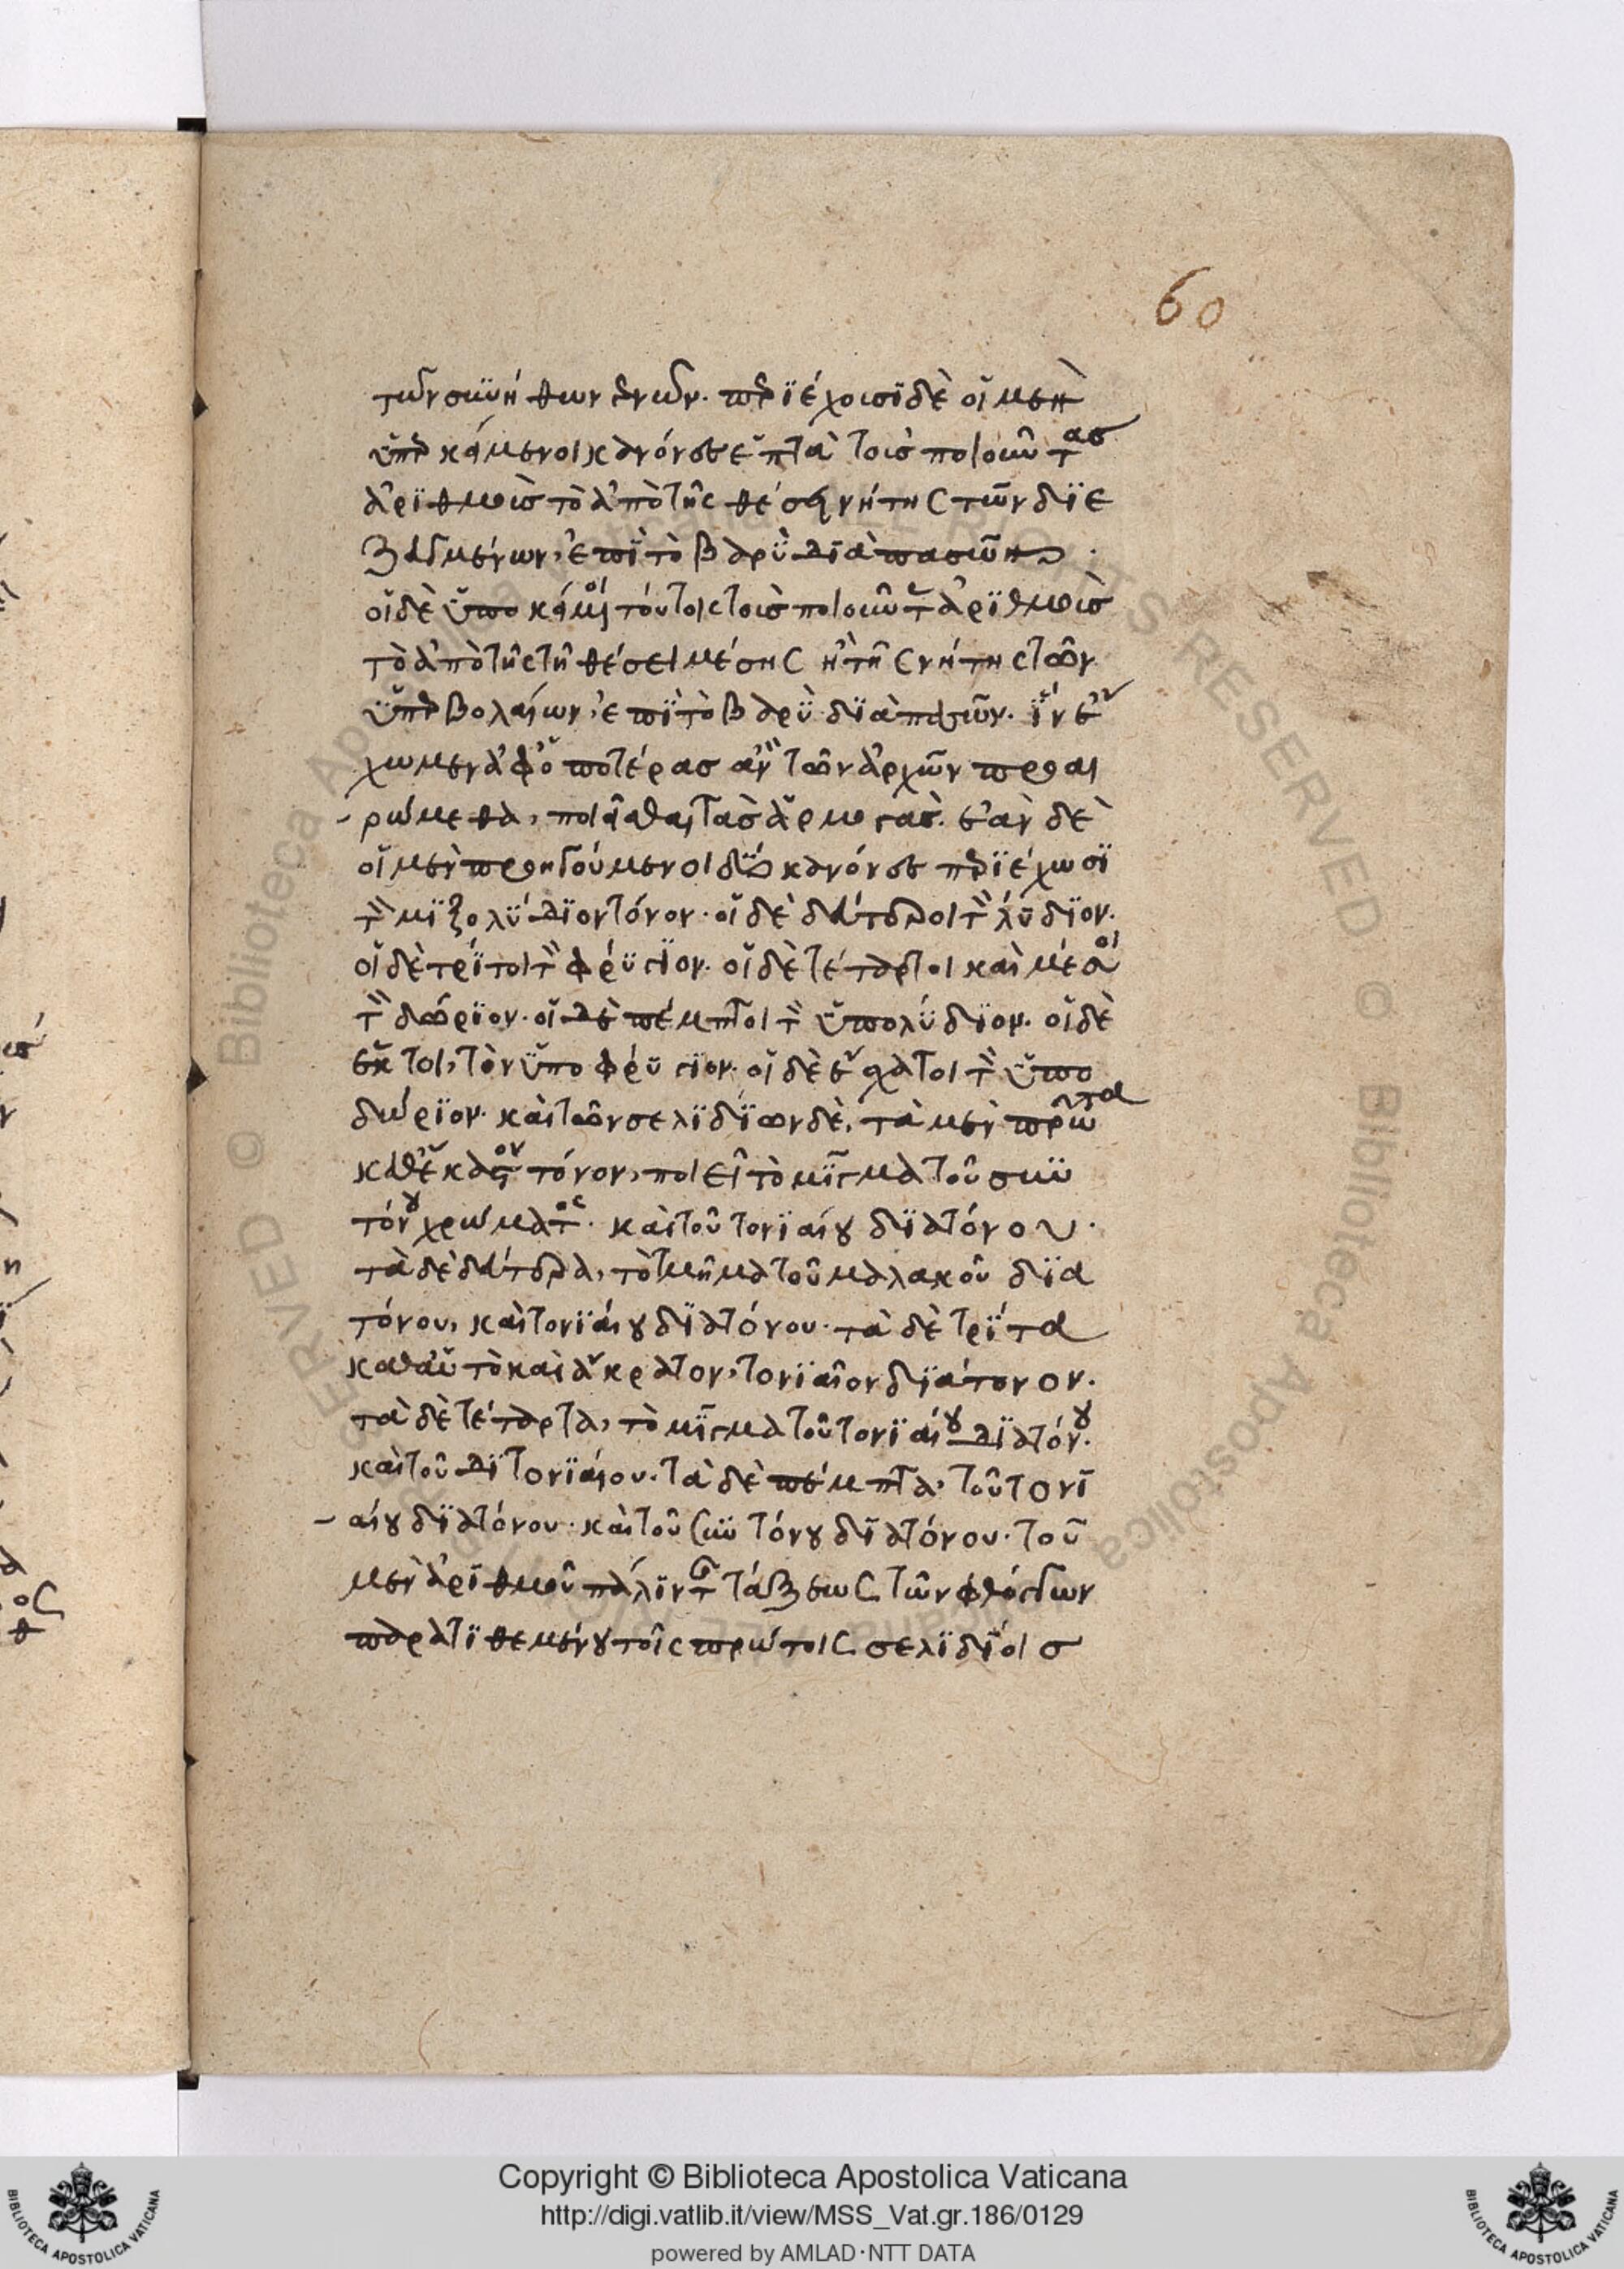 60
τῶν συνήθων γενῶν. περιέχουσι δὲ οἱ μὲν
ὑπερκείμενοι κανόνες ἑπτὰ τοὺς ποιοῦντας
ἀριθμοὺς τὸ ἀπὸ τῆς θέσει νήτης τῶν διε
ζευγμένων, ἐπὶ τὸ βαρὺ διὰ πασῶν.
οἱ δὲ ὑποκείμενοι τούτοις τοὺς ποιοῦντας ἀριθμοὺς
τὸ ἀπὸ τῆς τῇ θέσει μέσης ἢ τῆς νήτης τῶν
ὑπερβολαίων, ἐπὶ τὸ βαρὺ διὰ πασῶν. ἵν' ἔ
χωμεν ἀφ' ὁποτέρας ἂν τῶν ἀρχῶν προαι
ρώμεθα, ποιεῖσθαι τὰς ἁρμογάς. ἐὰν δὲ
οἱ μὲν προηγούμενοι δύο κανόνες περιέχωσι
τὸν μιξολύδιον τόνον. οἱ δὲ δεύτεροι τὸν λύδιον.
οἱ δὲ τρίτοι τὸν φρύγιον. οἱ δὲ τέταρτοι καὶ μέσοι
τὸν δώριον. οἱ δὲ πέμπτοι τὸν ὑπολύδιον. οἱ δὲ
ἕκτοι, τὸν ὑποφρύγιον. οἱ δὲ ἔσχατοι τὸν ὑπο
δώριον. καὶ τῶν σελιδίων δὲ, τὰ μὲν πρῶτα
καθ' ἕκαστον τόνον, ποιεῖ τὸ μῖγμα τοῦ συν
τόνου χρώματος. καὶ τοῦ τονιαίου διατόνου.
τὰ δὲ δεύτερα, τὸ μῖγμα τοῦ μαλακοῦ δια
τόνου, καὶ τονιαίου διατόνου. τὰ δὲ τρίτα
καθ' αὑτὸ καὶ ἄκρατον, τονιαῖον διάτονον.
τὰ δὲ τέταρτα, τὸ μῖγμα τοῦ τονιαίου διατόνου.
καὶ τοῦ διτονιαίου. τὰ δὲ πέμπτα, τοῦ τονι
αίου διατόνου. καὶ τοῦ συντόνου διατόνου. τοῦ
μὲν ἀριθμοῦ πάλιν τῆς τάξεως τῶν φθόγγων
παρατιθεμένου τοῖς πρώτοις σελιδίοις
Copyright © Biblioteca Apostolica Vaticana
http://digi.vatlib.it/view/MSS_Vat.gr.186/0129
powered by AMLAD·NTT DATA